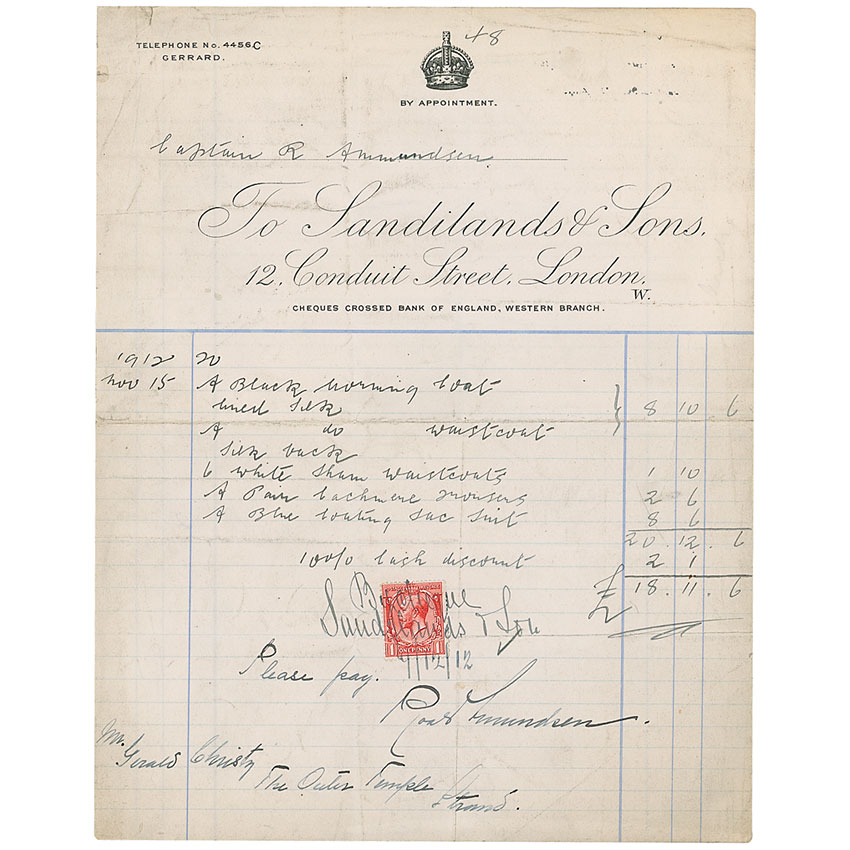 48
TELEPHONE No. 4456.C
GERRARD.
BY APPOINTMENT.
Captain R Ammundsen
To Sandilands & Sons.
12, Conduit Street, London.
W.
CHEQUES CROSSED BANK OF ENGLAND, WESTERN BRANCH.
1912 20
Nov 15 A Black Morning Coat
lined silk 8 10 . 6
A do waistcoat
silk back
6 white sham waistcoats 1 10
A Pair Cachmere Trousers 2 6
A Blue Coating Sac Suit 8 6
20 . 12 . 6
10% Cash discount 2 1
£ 18 . 11 . 6
Sandilands & Son
ONE PENNY
9/12/12
Please pay.
Roald Amundsen.
Mr. Gerald Christy
The Outer Temple
Strand.